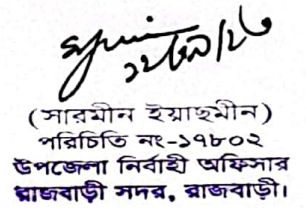 (সারমীন ইয়াছমীন)
পরিচিতি নং-১৭৮০২
উপজেলা নির্বাহী অফিসার
রাজবাড়ী সদর, রাজবাড়ী।